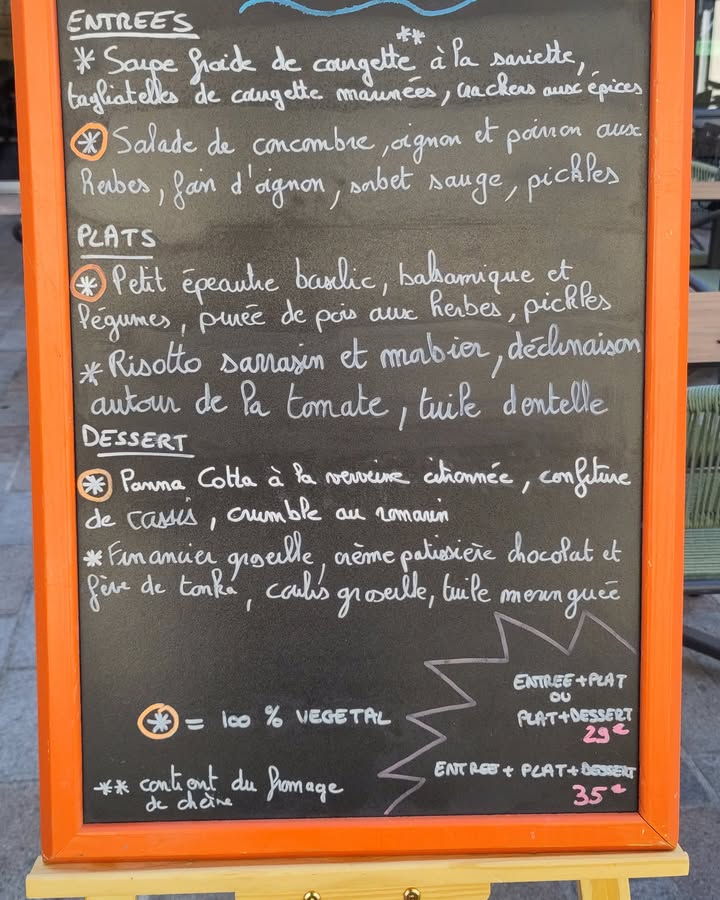 ENTREES
* Soupe froide de courgette** à la sariette,
tagliatelles de courgette marinées, crackers aux épices
* Salade de concombre, oignon et poivron aux
herbes, foin d'oignon, sorbet sauge, pickles
PLATS
* Petit épeautre basilic, balsamique et
légumes, purée de pois aux herbes, pickles
* Risotto sarrasin et morbier, déclinaison
autour de la tomate, tuile dentelle
DESSERT
* Panna Cotta à la verveine citronnée, confiture
de cassis, crumble au romarin
* Financier groseille, crème patissière chocolat et
fève de tonka, coulis groseille, tuile meringuée
ENTREE+PLAT
OU
PLAT+DESSERT
29€
* = 100 % VEGETAL
ENTREE + PLAT + DESSERT
35€
** contient du fromage
de chèvre